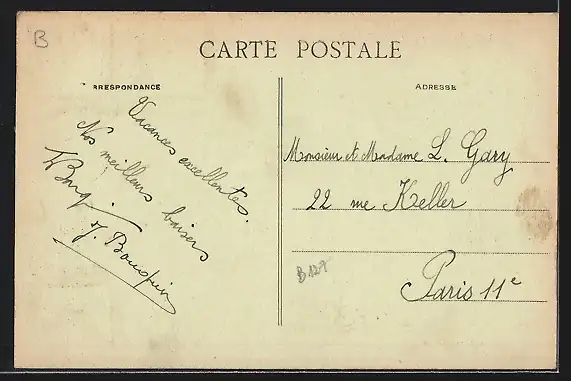 B
CARTE POSTALE
RRESPONDANCE
Vacances excellentes.
Nos meilleurs baisers
ADRESSE
Monsieur et Madame L. Gary
22 rue Keller
Paris 11e
B129